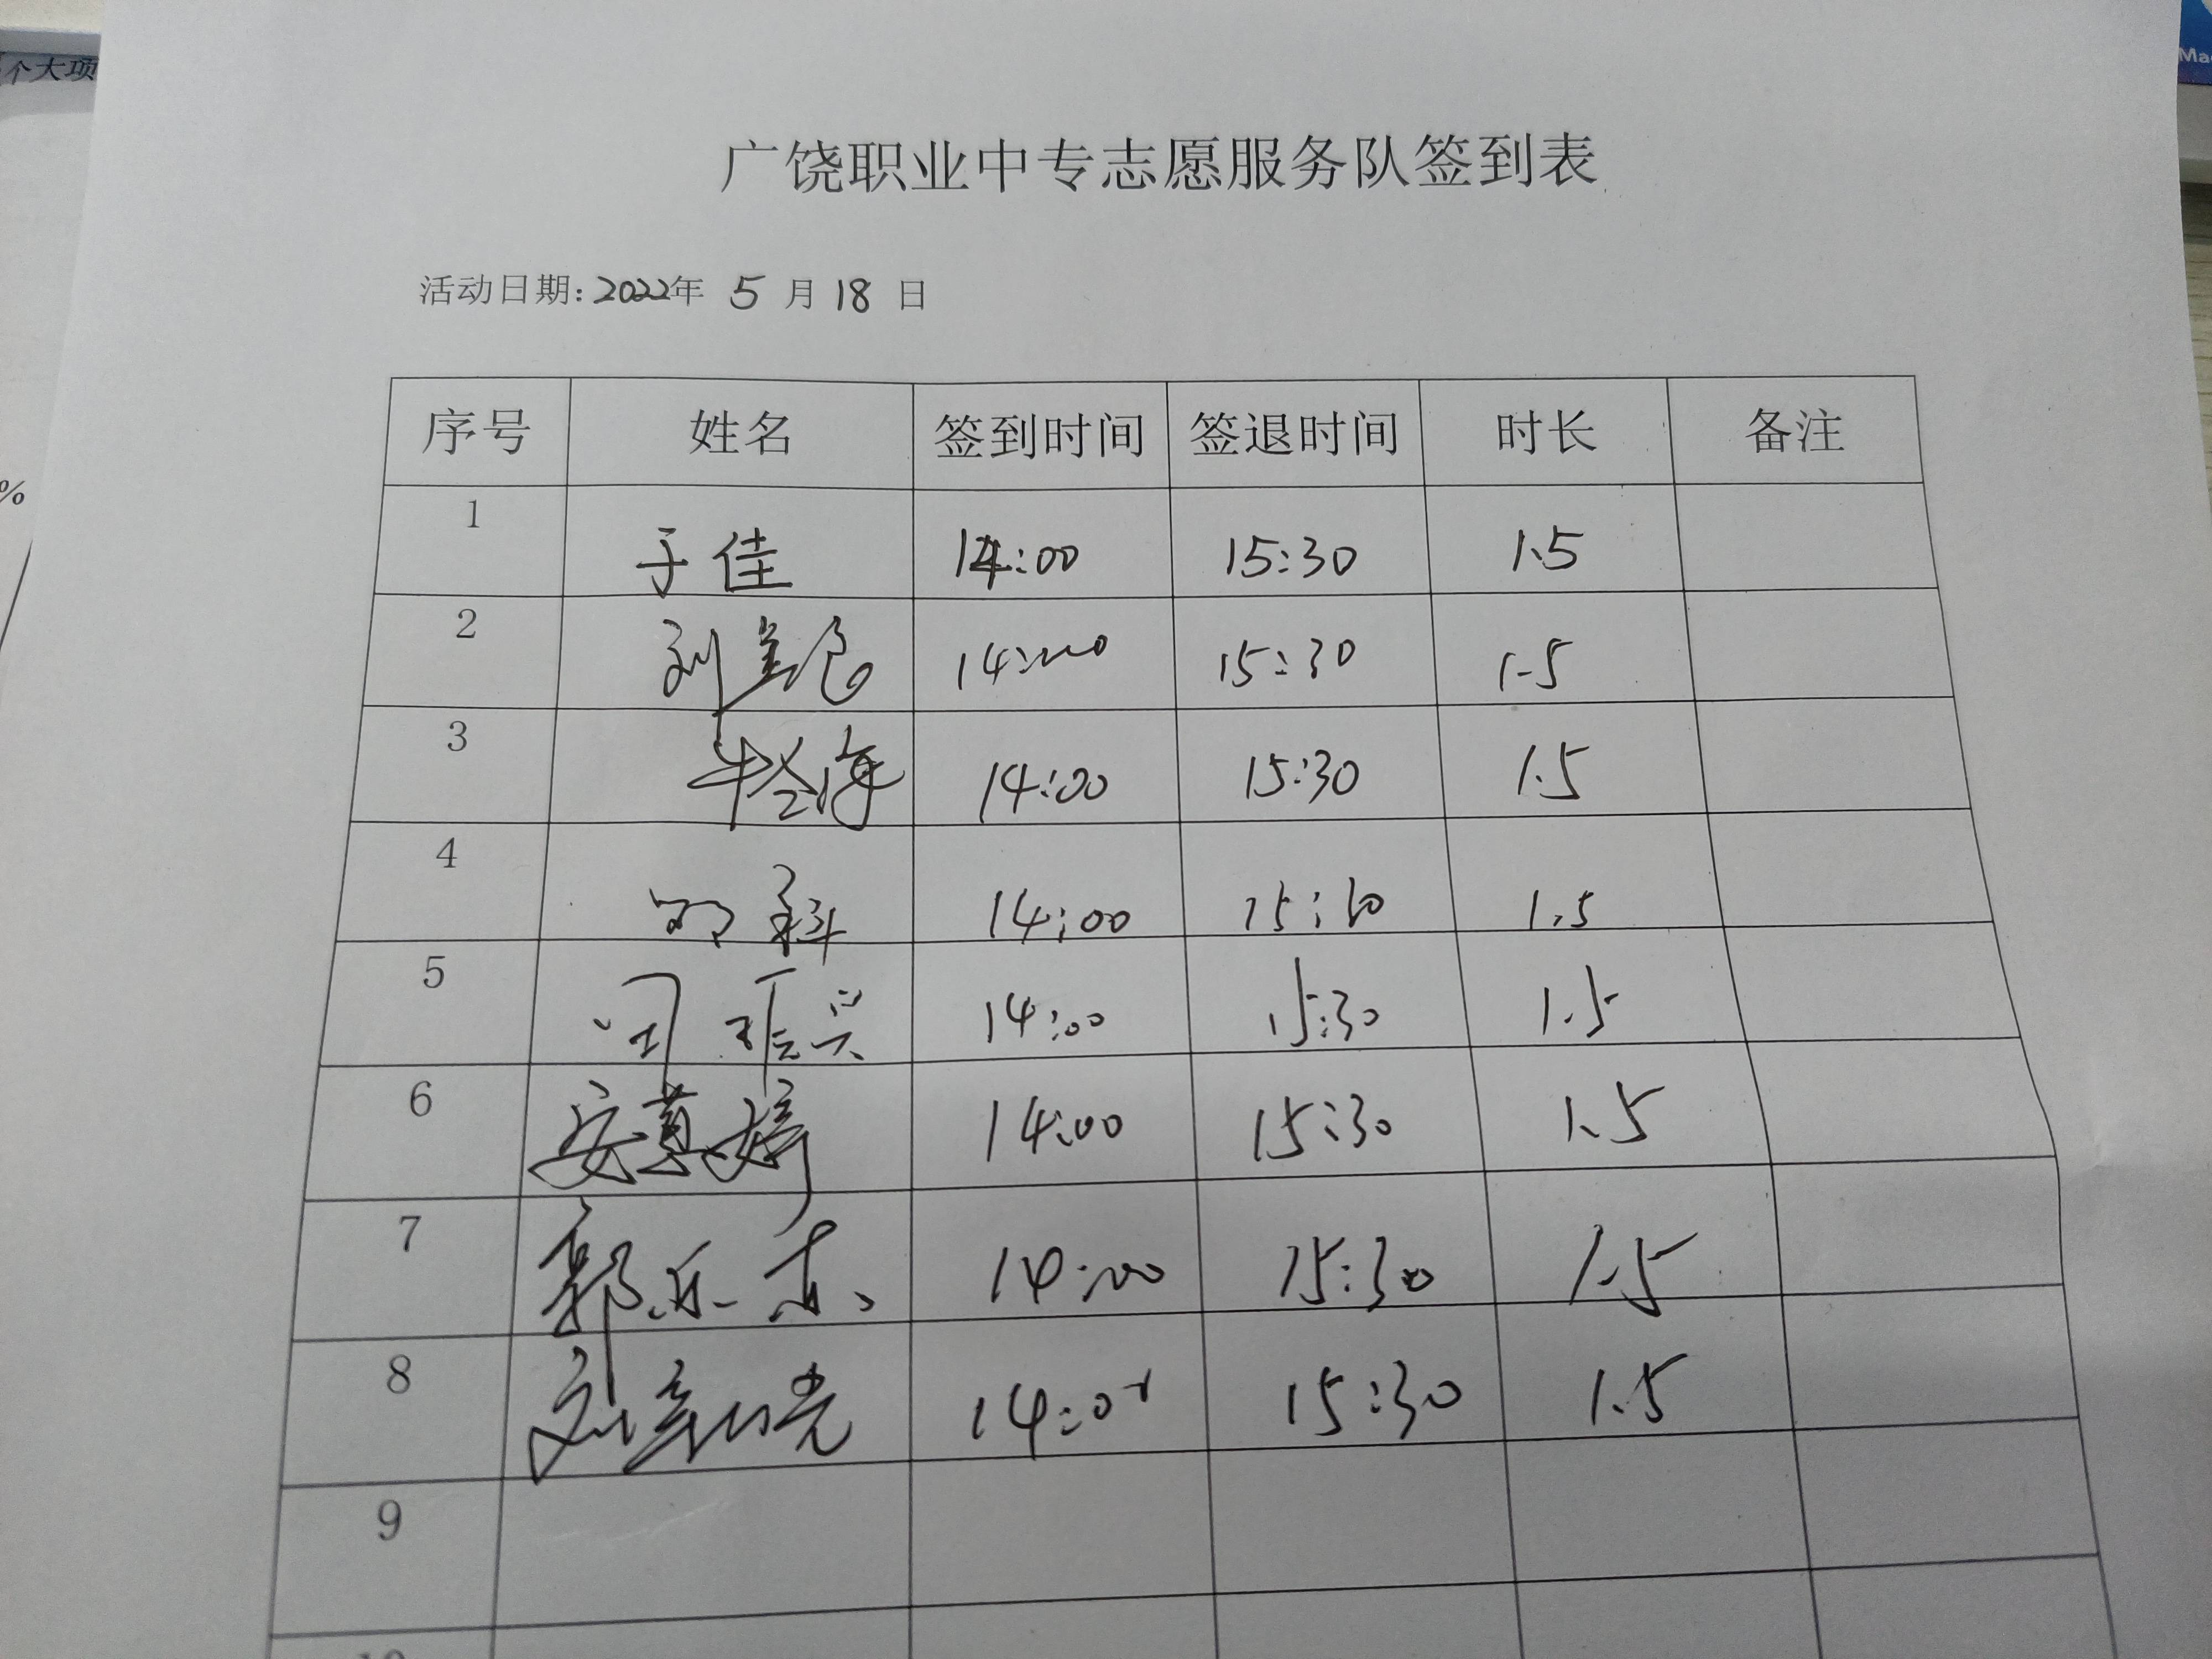 个大项
Ma
%
广饶职业中专志愿服务队签到表
活动日期:2022年 5 月 18 日
序号 姓名 签到时间 签退时间 时长 备注
1 于佳 14:00 15:30 1.5
2 刘 14:00 15:30 1.5
3 14:00 15:30 1.5
4 科 14:00 15:30 1.5
5 兴 14:00 15:30 1.5
6 安 14:00 15:30 1.5
7 郭乐 14:00 15:30 1.5
8 刘 14:00 15:30 1.5
9
10